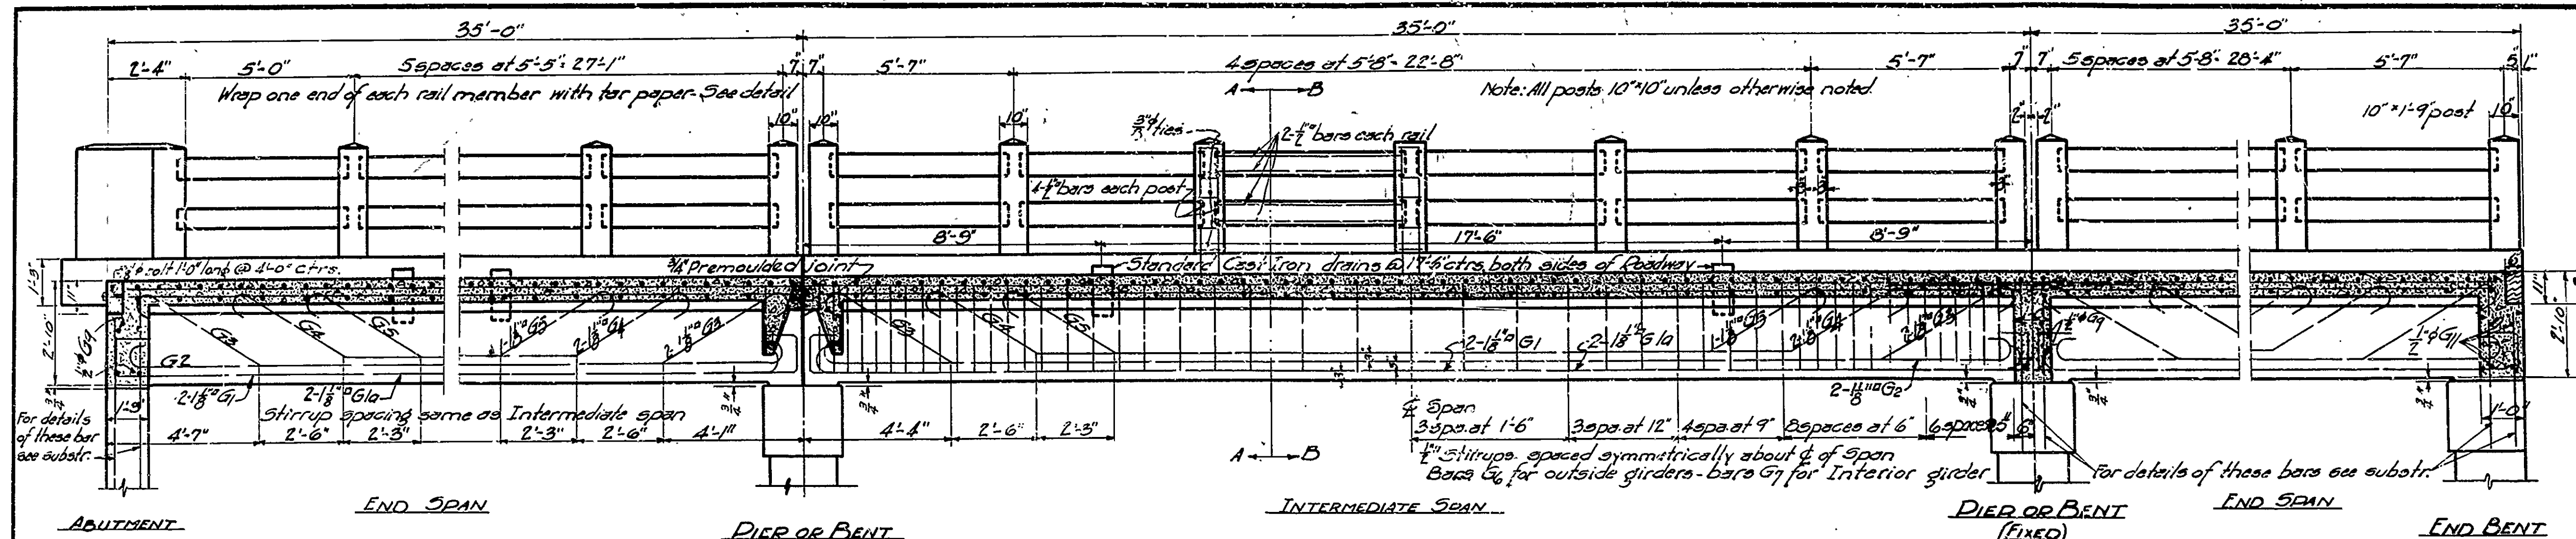 35'-0" 35'-0" 35'-0"
2'-4" 5'-0" 5 spaces at 5'-5" = 27'-1" 7" 7" 5'-7" 4 spaces at 5'-8" = 22'-8" 5'-7" 7" 7" 5 spaces at 5'-8" = 28'-4" 5'-7" 5" 1"
Wrap one end of each rail member with tar paper - See detail
A B
Note: All posts 10"x10" unless otherwise noted.
2" 2"
10" x 1'-9" post
10" 10" 10" 10"
ties
2-½"□ bars each rail
4-½"□ bars each post
3" 3" 3"
8'-9" 17'-6" 8'-9"
bolt 1'-0" long @ 4'-0" ctrs.
¾" Premoulded joint
Standard Cast Iron drains @ 17'-6" ctrs. both sides of Roadway
1'-3" 11" 2'-10"
11" 2'-10"
G3 G4 G5
G5 2-1⅛"□ G4 2-1⅛"□ G3
G3 G4 G5
G3 2-1⅛"□ G4 2-1⅛"□ G3
½"φ G9
½"φ G9
½"φ G11
G2
2-1⅛"□ G1
2-1⅛"□ G1a
2-1⅛"□ G1
2-1⅛"□ G1a
2-1⅛"□ G2
¾" ¾" ¾" ¾" ¾" ¾"
For details
of these bar
see substr.
1'-3"
Stirrup spacing same as Intermediate span
4'-7" 2'-6" 2'-3" 2'-3" 2'-6" 4'-1" 4'-4" 2'-6" 2'-3"
℄ Span
3 spa. at 1'-6" 3 spa. at 12" 4 spa. at 9" 8 spaces at 6" 6 spaces 5" 6"
1'-0"
A B
½" Stirrups spaced symmetrically about ℄ of Span
Bars G6 for outside girders - bars G7 for Interior girder
For details of these bars see substr.
ABUTMENT
END SPAN
PIER OR BENT
INTERMEDIATE SPAN
PIER OR BENT
(FIXED)
END SPAN
END BENT